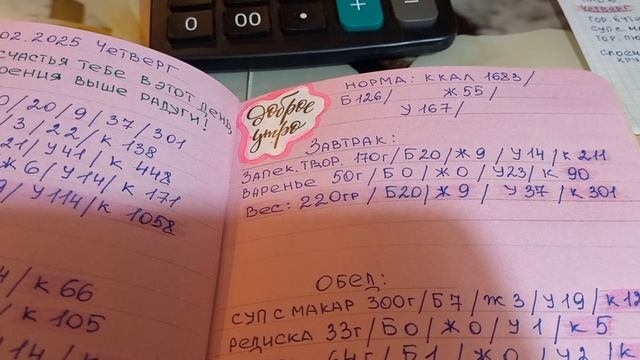 0
00
+
02.2025 ЧЕТВЕРГ
СЧАСТЬЯ ТЕБЕ В ЭТОТ ДЕНЬ
ВЫШЕ РАДУГИ!
/20/9/37/301
/3/22/К 138
21/У41/К 448
Ж6/У14/К 171
/У114/К 1058
/К 66
/К 105
14/К
Доброе
утро
НОРМА: ККАЛ 1683/
Б126/ Ж55/
У167/
ЗАВТРАК:
ЗАПЕК. ТВОР. 170г/Б20/Ж9/У14/К 211
ВАРЕНЬЕ 50г/Б0/Ж0/У23/К 90
ВЕС: 220гр/Б20/Ж9/У37/К 301
ОБЕД:
СУП С МАКАР 300г/Б7/Ж3/У19/К 12
РЕДИСКА 33г/Б0/Ж0/У1/К 5
64г/Б1/Ж0/У2/К
ЧЕТВЕРГ
СУП С МА